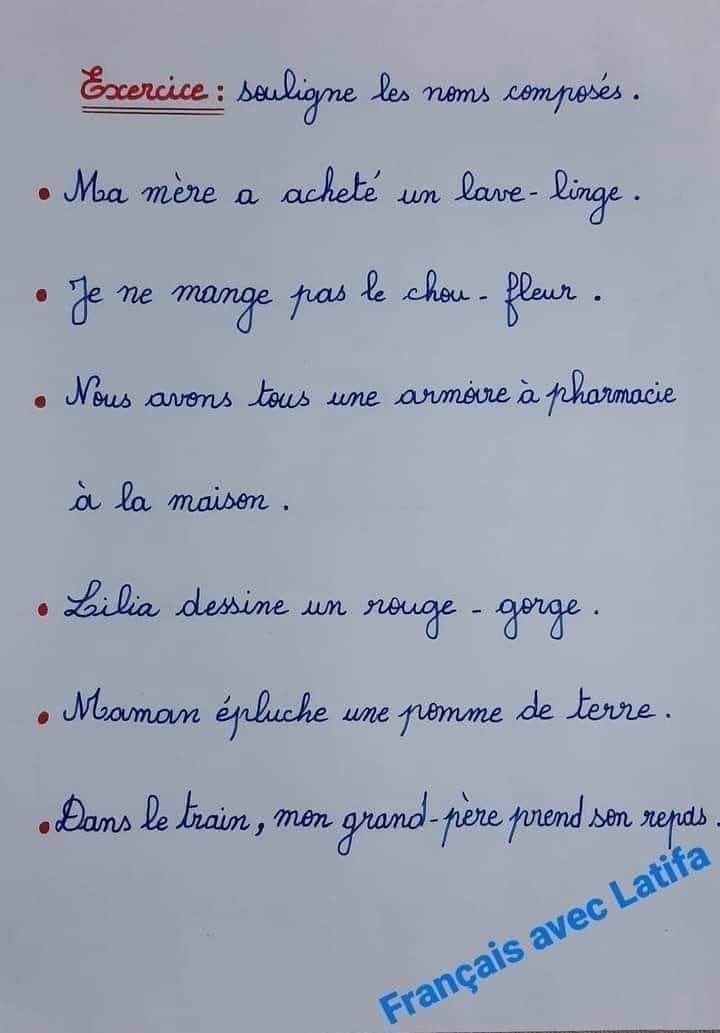 Exercice : souligne les noms composés .
• Ma mère a acheté un lave - linge .
• Je ne mange pas le chou - fleur .
• Nous avons tous une armoire à pharmacie
à la maison .
• Lilia dessine un rouge - gorge .
• Maman épluche une pomme de terre .
• Dans le train, mon grand-père prend son repas .
Français avec Latifa